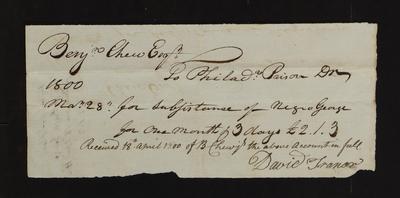 Benjn Chew Esqr.
To Philada. Prison Dr
1800
Mar. 28th. for Subsistance of Negro George
for One Month & 3 days £2.1.3
Received 18 April 1800 of B Chew jr the above Account in full
David